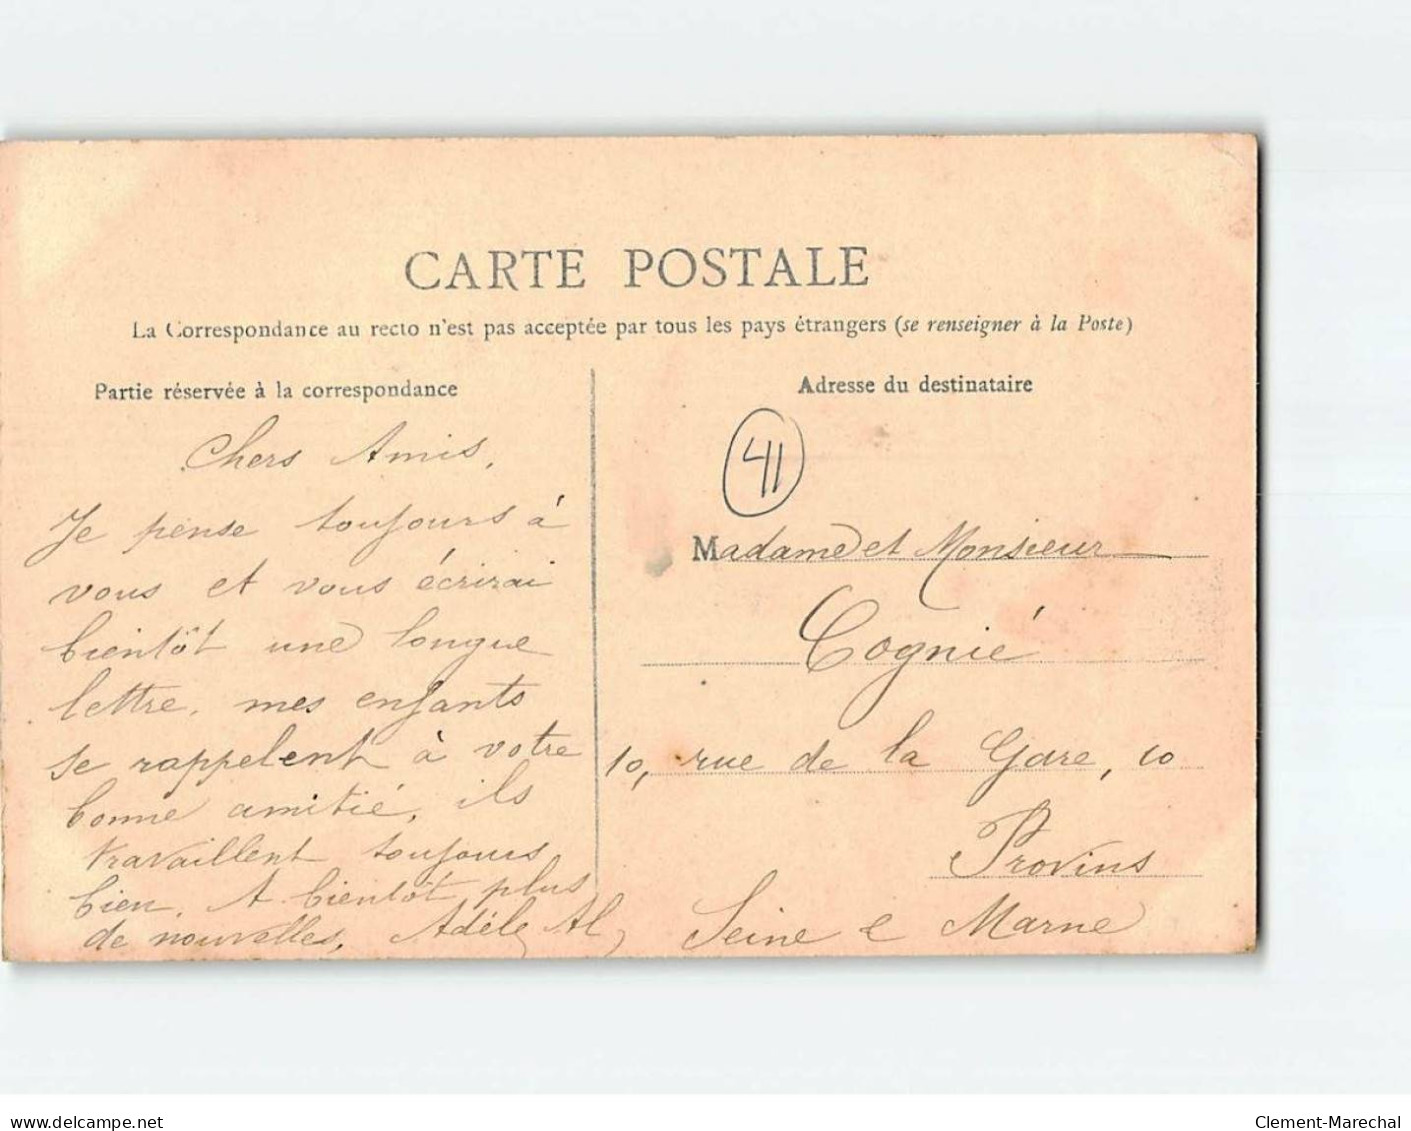 CARTE POSTALE
La Correspondance au recto n'est pas acceptée par tous les pays étrangers (se renseigner à la Poste)
Partie réservée à la correspondance
Chers Amis,
Je pense toujours à
vous et vous écrirai
bientôt une longue
lettre. mes enfants
se rappelent à votre
bonne amitié, ils
travaillent toujours
bien. A bientôt plus
de nouvelles, Adèle Al
Adresse du destinataire
41
Madame et Monsieur
Cognié
10, rue de la Gare, 10
Provins
Seine e Marne
delcampe.net
Clement-Marechal